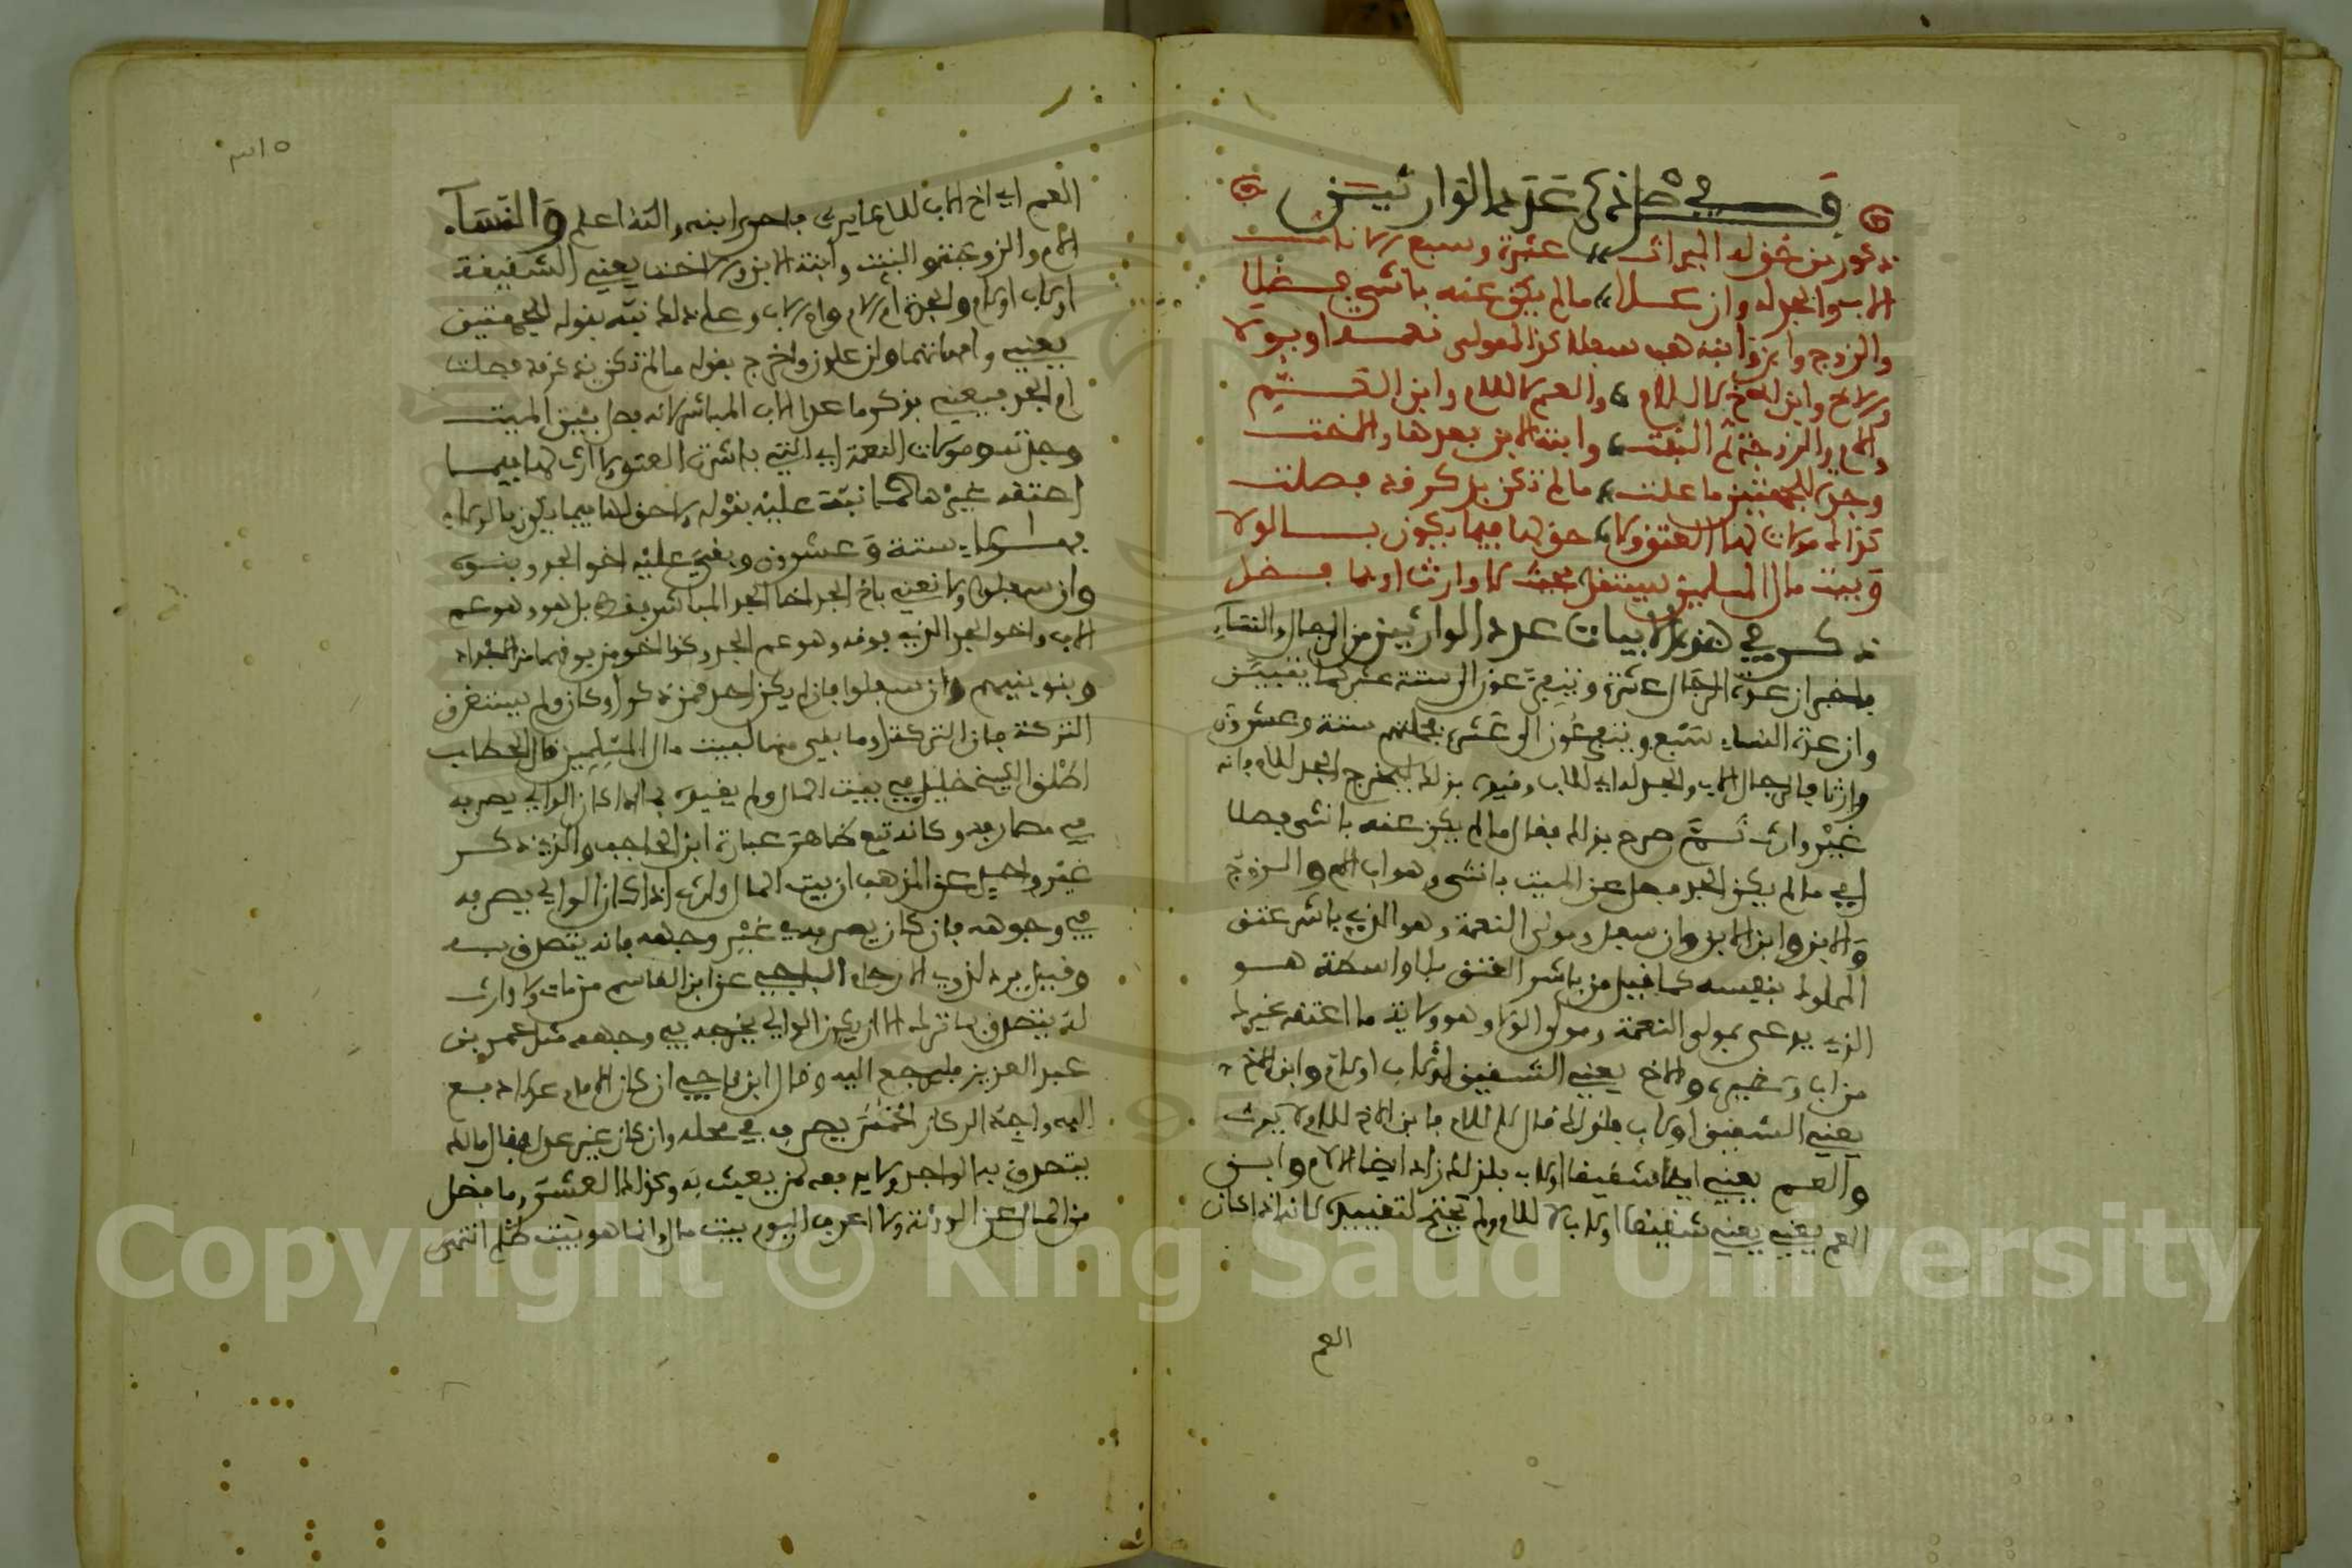 فصل في ذكر عدد الوارثين
ذكور من حق له الميراث عشرة وسبع الاناث
الاب والجد له وان علا ما لم يكن عنه بانثى فصلا
والزوج وابن وابنه هب سفلا كذاك مولى نعمة او بولا
والاخ وابن الاخ لا للام والعم لا للام وابن العم
والام والزوجة ثم البنت وابنة الابن بعدها والاخت
وجدة للجهتين ما علت ما لم تكن بذكر قد فصلت
كذاك مولات لها العتق ولا حق لها فيما يكون بالولا
وبيت مال المسلمين يستقل بحيث لا وارث او بما فضل
ذكر في هذه الابيات عدد الوارثين من الرجال والنساء
فاخبر ان عدة الرجال عشرة ويتفرعون الى ستة عشر كما يتبين
وان عدة النساء سبع ويتفرعون الى عشرة فجملتهم ستة وعشرون
وارثا فالرجال الاب والجد له اي للاب وقيده بذلك ليخرج الجد للام فانه
غير وارث ثم صرح بذلك فقال ما لم يكن عنه بانثى فصلا
اي ما لم يكن الجد فصل عن الميت بانثى وهو اب الام والزوج
والابن وابن الابن وان سفل ومولى النعمة وهو الذي باشر عتق
المملوك بنفسه كما قيل من باشر العتق بلا واسطة هو
الذي يدعى بمولى النعمة ومولى الولا وهو ولاية ما اعتقه غيرك
من اب وشبهه والاخ يعني الشقيق او لاب او لام وابن الاخ
يعني الشقيق او لاب فلذلك قال لا للام فابن الاخ للام لا يرث
والعم يعني ايضا شقيقا او لاب فلذلك زاد ايضا لا للام وابن
العم يعني يعني شقيقا او لاب لا للام ولم يحتج لتقييده لانه اذا كان
العم
العم اي اخ الاب للام لا يرث فاحرى ابنه والله اعلم والنساء
الام والزوجة والبنت وابنة الابن والاخت يعني الشقيقة
او لاب او لام والجدة ام الام وام الاب وعلى ذلك نبه بقوله للجهتين
يعني وامهاتهما وان علون واخرج بقوله ما لم تكن بذكر قد فصلت
ام الجد فيعني بذكر ما عدا الاب المباشر لانه فصل بين الميت
وجدته ومولات النعمة اي التي باشرت العتق ولا ارث لها فيما
اعتقه غيرها كما نبه عليه بقوله ولا حق لها فيما يكون بالولاء
فهؤلاء ستة وعشرون وبقي عليه اخو الجد وبنوه
وان سفلوا ولا نعني باخ الجد اخا الجد المباشر فقط بل هو وهو عم
الاب واخو الجد الذي فوقه وهو عم الجد وكذا اخو من فوقهما من الاجداد
وبنو بنيهم وان سفلوا فان لم يكن احد ممن ذكر او كان ولم يستغرق
التركة فان التركة او ما بقي منها لبيت مال المسلمين قال الحطاب
اطلق الشيخ خليل في بيت المال ولم يقيده بما اذا كان الوالي يصرفه
في مصارفه وكانه تبع ظاهر عبارة ابن الحاجب والذي ذكر
غير واحد عن المذهب ان بيت المال وارث اذا كان الوالي يصرفه
في وجوهه فان كان يصرفه في غير وجهه فانه يتصدق به
وقيل يرد لذوي الارحام الباجي عن ابن القاسم من مات ولا وارث
له يتصدق بما ترك الا ان يكون الوالي يخرجه في وجهه مثل عمر بن
عبد العزيز فليرجع اليه وقال ابن ناجي ان كان الامام عدلا دفع
اليه واجبه الركاز الخمس يصرفه في محله وان كان غير عدل فقال مالك
يتصدق به الواجد ولا يدفعه لمن يعيث به وكذلك العشر وما فضل
من المال عن الورثة ولا اعرف اليوم بيت مال وانما هو بيت ظلم انتهى